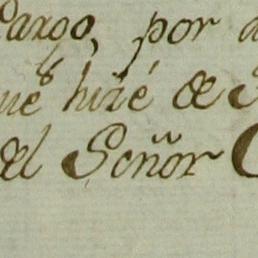 Cargo, por
que hizé de
del Señor